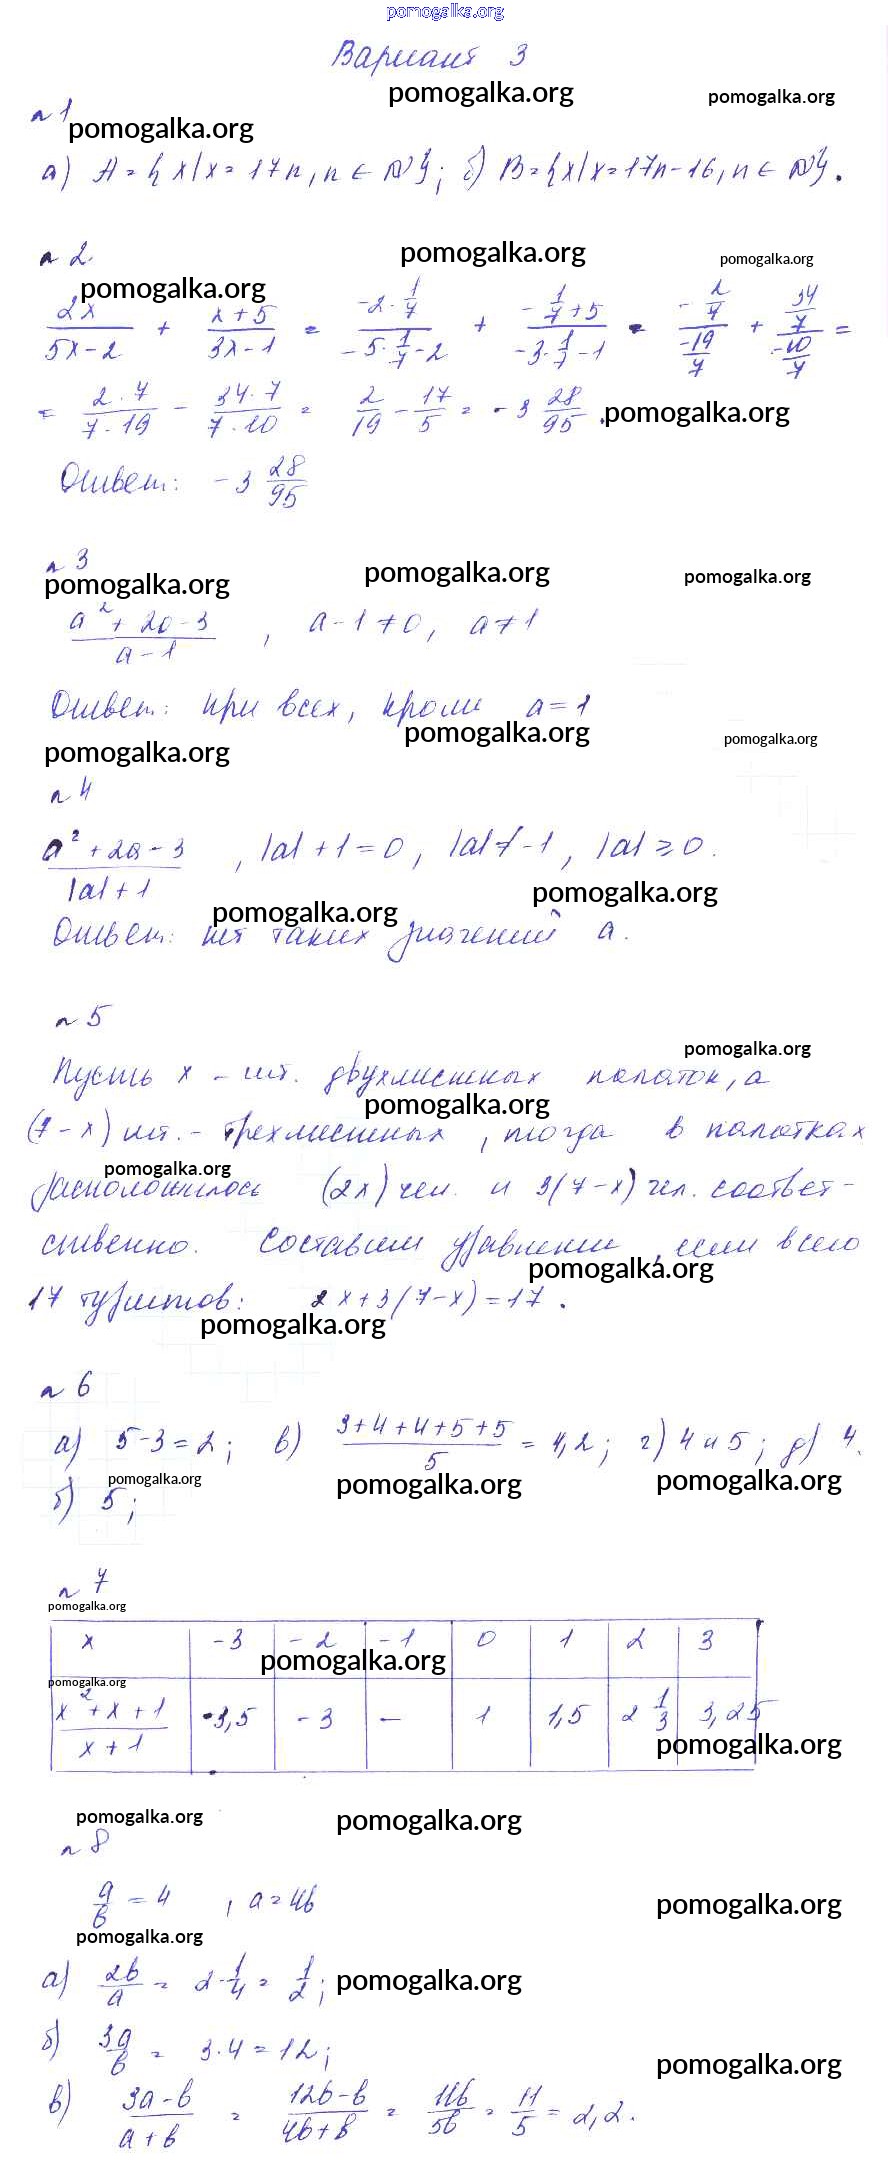 pomogalka.org
Вариант 3
pomogalka.org pomogalka.org
№1
pomogalka.org
а) A = {x|x = 17n, n ∈ N}; б) B = {x|x = 17n-16, n ∈ N}.
№2
pomogalka.org pomogalka.org
pomogalka.org
2x/(5x-2) + (x+5)/(3x-1) = (-2·1/7)/(-5·1/7-2) + (-1/7+5)/(-3·1/7-1) = (-2/7)/(-19/7) + (34/7)/(-10/7) =
= (2·7)/(7·19) - (34·7)/(7·10) = 2/19 - 17/5 = -3 28/95. pomogalka.org
Ответ: -3 28/95
№3
pomogalka.org pomogalka.org pomogalka.org
(a²+2a-3)/(a-1), a-1≠0, a≠1
Ответ: при всех, кроме a=1
pomogalka.org pomogalka.org pomogalka.org
№4
(a²+2a-3)/(|a|+1), |a|+1=0, |a|≠-1, |a|≥0.
pomogalka.org pomogalka.org
Ответ: нет таких значений a.
№5
pomogalka.org
Пусть x - шт. двухместных палаток, а
pomogalka.org
(7-x) шт. - трехместных, тогда в палатках
pomogalka.org
расположилось (2x) чел. и 3(7-x) чел. соответ-
ственно. Составим уравнение, если всего
pomogalka.org
17 туристов: 2x+3(7-x)=17.
pomogalka.org
№6
а) 5-3=2; в) (3+4+4+5+5)/5 = 4,2; г) 4 и 5; д) 4.
pomogalka.org pomogalka.org pomogalka.org
б) 5;
№7
pomogalka.org
x -3 -2 -1 0 1 2 3
pomogalka.org
pomogalka.org
(x²+x+1)/(x+1) -3,5 -3 - 1 1,5 2 1/3 3,25
pomogalka.org
pomogalka.org pomogalka.org
№8
a/b = 4, a=4b
pomogalka.org
pomogalka.org
а) 2b/a = 2·1/4 = 1/2; pomogalka.org
б) 3a/b = 3·4=12;
pomogalka.org
в) (3a-b)/(a+b) = (12b-b)/(4b+b) = 11b/5b = 11/5 = 2,2.